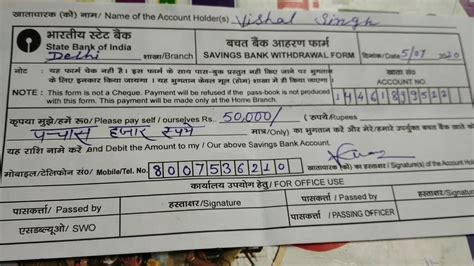 खाताधारक (कों) का नाम/ Name of the Account Holder(s) Vishal Singh
भारतीय स्टेट बैंक
State Bank of India
Delhi शाखा/Branch
बचत बैंक आहरण फार्म
SAVINGS BANK WITHDRAWAL FORM
दिनांक/Date 5/07 2020
नोट : यह फार्म चेक नहीं है। इस फार्म के साथ पास-बुक प्रस्तुत नहीं किए जाने पर भुगतान के लिए इनकार किया जायेगा । यह भुगतान सिर्फ मूल (होम) शाखा में ही किया जाएगा ।
खाता सं०
ACCOUNT NO.
NOTE : This form is not a Cheque. Payment will be refused if the pass-book is not produced
with this form. This payment will be made only at the Home Branch.
कृपया मुझे/हमें रू०/ Please pay self / ourselves Rs. 50,000/ (रुपये/Rupees
पच्चास हजार रुपये मात्र/Only) का भुगतान करें और मेरे/हमारे उपर्युक्त बचत बैंक खाते
यह राशि नामे करें And Debit the Amount to my / Our above Savings Bank Account.
मोबाईल/टेलिफोन सं०/ Mobile/Tel. No. 8007536210
खाताधारक (कों) का हस्ताक्षर/Signature(s) of the Account Hold
कार्यालय उपयोग हेतु/ FOR OFFICE USE
पासकर्त्ता/ Passed by
हस्ताक्षर/Signature
पासकर्त्ता/ Passed by
पासकर्त्ता / PASSING OFFICER
हस्ताक्षर/Signature
एसडब्ल्यूओ / SWO